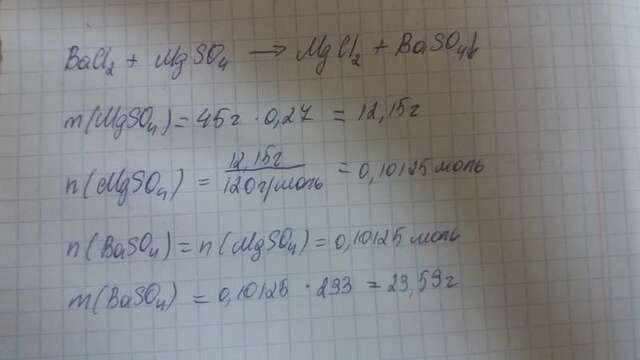 BaCl₂ + MgSO₄ → MgCl₂ + BaSO₄↓
m(MgSO₄) = 45г · 0,27 = 12,15г
n(MgSO₄) = 12,15г / 120г/моль = 0,10125 моль
n(BaSO₄) = n(MgSO₄) = 0,10125 моль
m(BaSO₄) = 0,10125 · 233 = 23,59г